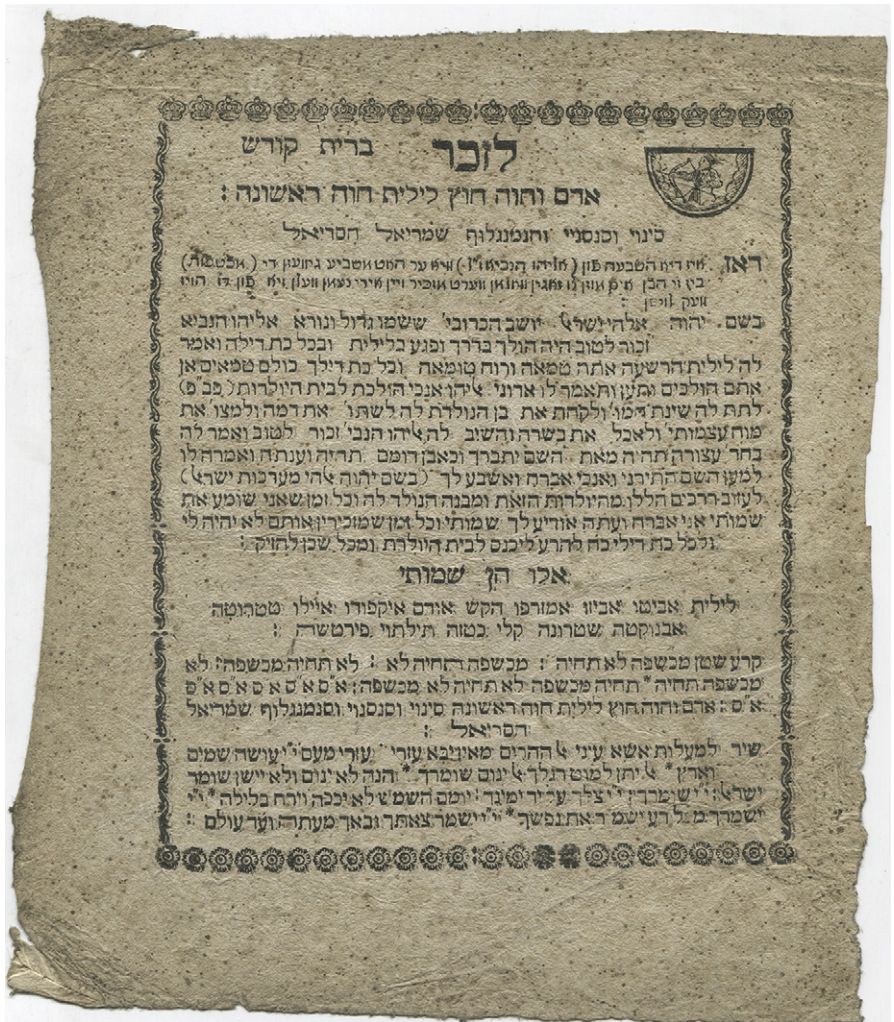 לזכר ברית קודש
אדם וחוה חוץ לילית חוה ראשונה :
סינוי וסנסניי וחנמנגלוף שמריאל חסריאל
דאז איז דיא השבעה פון ( אליהו הנביא ז״ל ) וויא ער האט משביע גיוועזן די
בשם יהוה אלהי ישראל יושב הכרובי׳ ששמו גדול ונורא אליהו הנביא
זכור לטוב היה הולך בדרך ופגע בלילית ובכל כת דילה ואמר
לה לילית הרשעה אתה טמאה ורוח טומאה וכל כת דילך כולם טמאים אן
אתם הולכים ותען ותאמר לו אדוני אליהו אנכי הולכת לבית היולדות
לתת לה שינת המו׳ ולקחת את בן הנולדת לה לשתו׳ את דמה ולמצו את
מוח עצמותי׳ ולאכל את בשרה והשיב לה אליהו הנבי׳ זכור לטוב ואמר לה
בחר׳ עצורה תהיה מאת השם יתברך וכאבן דומם תהיה וענתה ואמרה לו
למען השם התירני ואנכי אברח ואשבע לך ( בשם יהוה אלהי מערכות ישראל )
לעזוב דרכים הללו מהיולדות הזאת ומבנה הנולד לה וכל זמן שאני שומע את
שמותי אני אברח ועתה אודיע לך שמותי וכל זמן שמזכירין אותם לא יהיה לי
ולכל כת דילי כח להרע ליכנס לבית היולדת ומכל שכן להזיק :
אלו הן שמותי
לילית אביטו אביזו אמזרפו הקש אודם איקפודו איילו טטרוטה
אבנוקטה שטרונה קלי בטזה תילתוי פירטשה :
קרע שטן מכשפה לא תחיה : מכשפה תחיה לא : לא תחיה מכשפה : לא
מכשפה תחיה * תחיה מכשפה לא תחיה לא מכשפה : א״ס א״ס א״ס א״ס א״ס
א״ס : אדם וחוה חוץ לילית חוה ראשונה סינוי וסנסנוי וסמנגלוף שמריאל
חסריאל :
שיר למעלות אשא עיני אל ההרים מאין יבא עזרי עזרי מעם י״י עושה שמים
וארץ * אל יתן למוט רגלך אל ינום שומרך * הנה לא ינום ולא יישן שומר
ישראל : י״י שומרך י״י צלך על יד ימינך : יומם השמש לא יככה וירח בלילה * י״י
ישמרך מכל רע ישמר את נפשך * י״י ישמר צאתך ובאך מעתה ועד עולם :